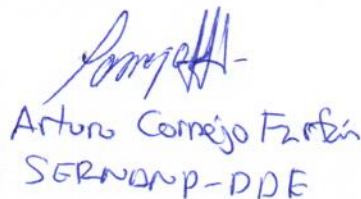 Arturo Cornejo Farfán
SERNANP-DDE